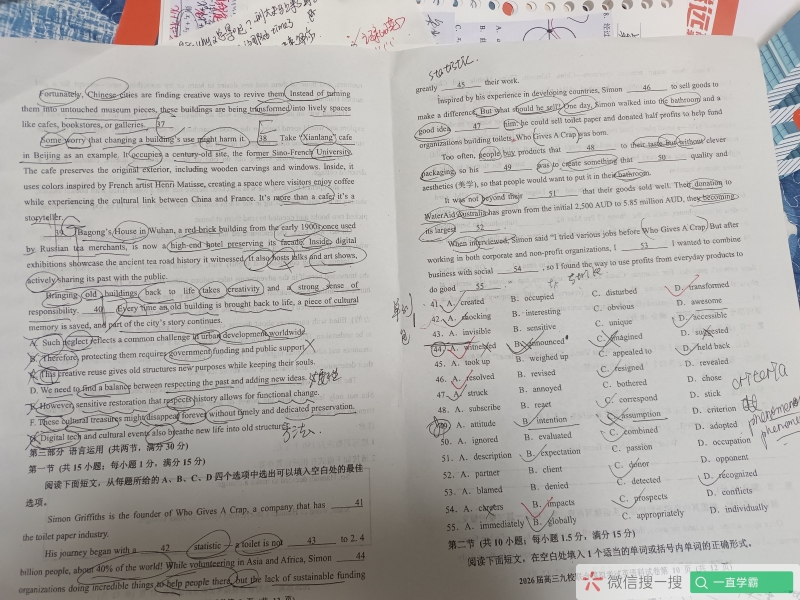 Fortunately, Chinese cities are finding creative ways to revive them. Instead of turning
them into untouched museum pieces, these buildings are being transformed into lively spaces
like cafes, bookstores, or galleries. 37
Some worry that changing a building's use might harm it. 38 Take "Xianlang" cafe
in Beijing as an example. It occupies a century-old site, the former Sino-French University.
The cafe preserves the original exterior, including wooden carvings and windows. Inside, it
uses colors inspired by French artist Henri Matisse, creating a space where visitors enjoy coffee
while experiencing the cultural link between China and France. It's more than a cafe; it's a
storyteller.
39 Bagong's House in Wuhan, a red-brick building from the early 1900s once used
by Russian tea merchants, is now a high-end hotel preserving its facade. Inside, digital
exhibitions showcase the ancient tea road history it witnessed. It also hosts talks and art shows,
actively sharing its past with the public.
Bringing old buildings back to life takes creativity and a strong sense of
responsibility. 40 Every time an old building is brought back to life, a piece of cultural
memory is saved, and part of the city's story continues.
A. Such neglect reflects a common challenge in urban development worldwide.
B. Therefore, protecting them requires government funding and public support.
C. This creative reuse gives old structures new purposes while keeping their souls.
D. We need to find a balance between respecting the past and adding new ideas.
E. However, sensitive restoration that respects history allows for functional change.
F. These cultural treasures might disappear forever without timely and dedicated preservation.
G. Digital tech and cultural events also breathe new life into old structures.
第三部分 语言运用 (共两节，满分 30 分)
第一节 (共 15 小题; 每小题 1 分, 满分 15 分)
阅读下面短文，从每题所给的 A、B、C、D 四个选项中选出可以填入空白处的最佳
选项。
Simon Griffiths is the founder of Who Gives A Crap, a company that has 41
the toilet paper industry.
His journey began with a 42 statistic: a toilet is not 43 to 2. 4
billion people, about 40% of the world! While volunteering in Asia and Africa, Simon 44
organizations doing incredible things to help people there, but the lack of sustainable funding
statistic.
greatly 45 their work.
Inspired by his experience in developing countries, Simon 46 to sell goods to
make a difference. But what should he sell? One day, Simon walked into the bathroom and a
good idea 47 him: he could sell toilet paper and donated half profits to help fund
organizations building toilets. Who Gives A Crap was born.
Too often, people buy products that 48 to their taste but without clever
packaging, so his 49 was to create something that 50 quality and
aesthetics (美学), so that people would want to put it in their bathroom.
It was not beyond their 51 that their goods sold well. Their donation to
WaterAid Australia has grown from the initial 2,500 AUD to 5.85 million AUD, they becoming
its largest 52 .
When interviewed, Simon said "I tried various jobs before Who Gives A Crap. But after
working in both corporate and non-profit organizations, I 53 I wanted to combine
business with social 54 , so I found the way to use profits from everyday products to
do good 55 ."
41. A. created B. occupied C. disturbed D. transformed
42. A. shocking B. interesting C. obvious D. awesome
43. A. invisible B. sensitive C. unique D. accessible
44. A. witnessed B. announced C. imagined D. suggested
45. A. took up B. weighed up C. appealed to D. held back
46. A. resolved B. revised C. resigned D. revealed
47. A. struck B. annoyed C. bothered D. chose
48. A. subscribe B. react C. correspond D. stick
49. A. attitude B. intention C. assumption D. criterion
50. A. ignored B. evaluated C. combined D. adopted
51. A. description B. expectation C. passion D. occupation
52. A. partner B. client C. donor D. opponent
53. A. blamed B. denied C. detected D. recognized
54. A. careers B. impacts C. prospects D. conflicts
55. A. immediately B. globally C. appropriately D. individually
criteria
第二节 (共 10 小题; 每小题 1.5 分, 满分 15 分)
阅读下面短文，在空白处填入 1 个适当的单词或括号内单词的正确形式。
微信搜一搜
一直学霸